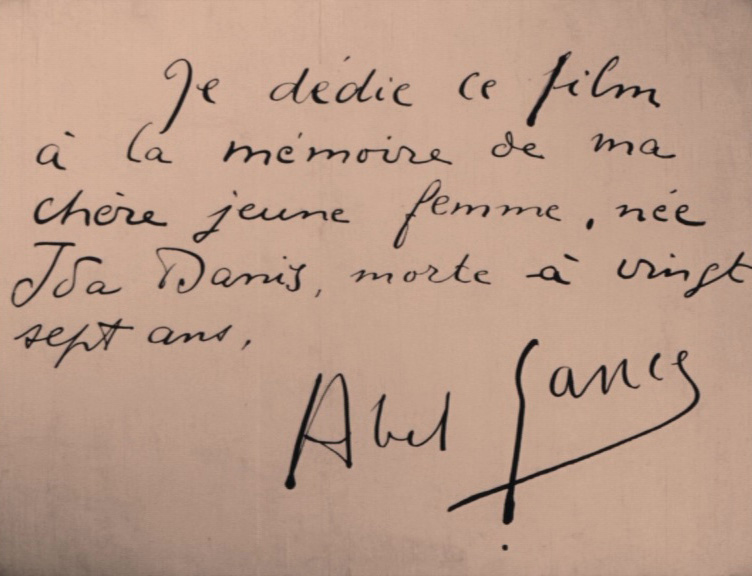 Je dédie ce film
à la mémoire de ma
chère jeune femme, née
Ida Danis, morte à vingt
sept ans,
Abel Gance